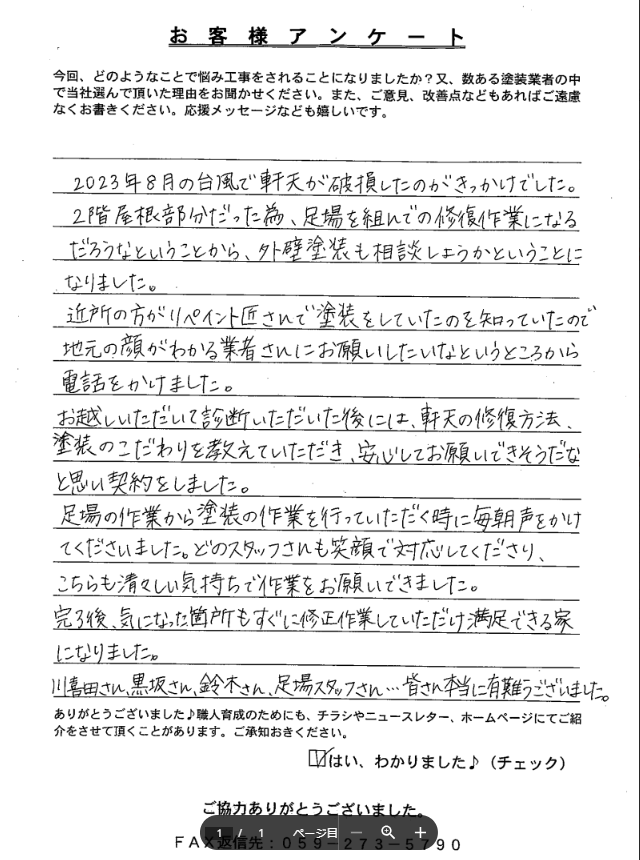 お客様アンケート
今回、どのようなことで悩み工事をされることになりましたか？又、数ある塗装業者の中
で当社選んで頂いた理由をお聞かせください。また、ご意見、改善点などもあればご遠慮
なくお書きください。応援メッセージなども嬉しいです。
2023年8月の台風で軒天が破損したのがきっかけでした。
2階屋根部分だった為、足場を組んでの修復作業になる
だろうなということから、外壁塗装も相談しようかということに
なりました。
近所の方がリペイント匠さんで塗装をしていたのを知っていたので
地元の顔がわかる業者さんにお願いしたいなというところから
電話をかけました。
お越しいただいて診断いただいた後には、軒天の修復方法、
塗装のこだわりを教えていただき、安心してお願いできそうだな
と思い契約をしました。
足場の作業から塗装の作業を行っていただく時に毎朝声をかけ
てくださいました。どのスタッフさんも笑顔で対応してくださり、
こちらも清々しい気持ちで作業をお願いできました。
完了後、気になった箇所もすぐに修正作業していただけ満足できる家
になりました。
川喜田さん、黒坂さん、鈴木さん、足場スタッフさん…皆さん本当に有難うございました。
ありがとうございました♪職人育成のためにも、チラシやニュースレター、ホームページにてご紹
介をさせて頂くことがあります。ご承知おきください。
はい、わかりました♪（チェック）
ご協力ありがとうございました。
1 / 1 ページ目
ＦＡＸ返信先：０５９－２７３－５７９０